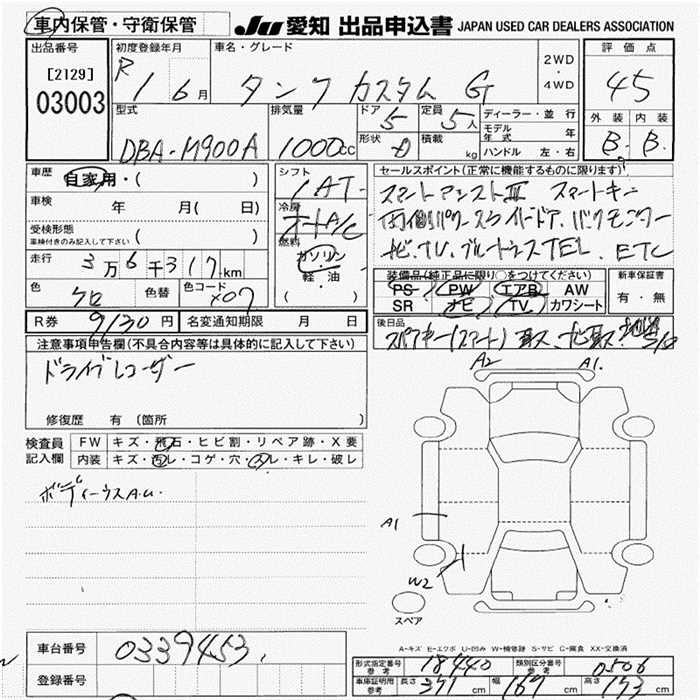 車内保管・守衛保管
JU 愛知 出品申込書 JAPAN USED CAR DEALERS ASSOCIATION
出品番号
[2129]
03003
初度登録年月
R 1 6月
車名・グレード
タンク カスタム G
2WD
・
4WD
評価点
4.5
外装 内装
B. B.
型式
DBA-M900A
排気量
1000cc
ドア
5
定員
5人
形状
積載
kg
ディーラー・並行
モデル年式 年
ハンドル 左・右
車歴
自家用・( )
車検 年 月( 日)
受検形態
車検付きのみ記入して下さい ( )
走行
3万6千317km
色
クロ
色替
色コード
X07
R券 9130円
名変通知期限 月 日
シフト
IAT
冷房
オートA/C
燃料
ガソリン
軽・油
( )
セールスポイント(正常に機能するものに限ります)
スマートアシストⅢ スマートキー
両側パワースライドドア、バックモニター
ナビ、TV、ブルートゥースTEL、ETC
装備品(純正品に限り〇をつけてください)
PS PW エアB AW
SR ナビ TV カワシート
新車保証書
有・無
後日品
スペアキー(スマート)
注意事項申告欄(不具合内容等は具体的に記入して下さい)
ドライブレコーダー
修復歴 有 (箇所 )
検査員記入欄
FW キズ・飛石・ヒビ割・リペア跡・X要
内装 キズ・汚レ・コゲ・穴・スレ・キレ・破レ
ボディーウスA.U.
A2 A1.
A1
W2
スペア
A-キズ E-エクボ U-凹み W-補修跡 S-サビ C-腐食 XX-交換済
車台番号
0339453
登録番号
形式指定番号
参考
18440
類別区分番号
参考
0506
車庫証明用
参考
長さ 371 cm 幅 167 cm 高さ 173 cm